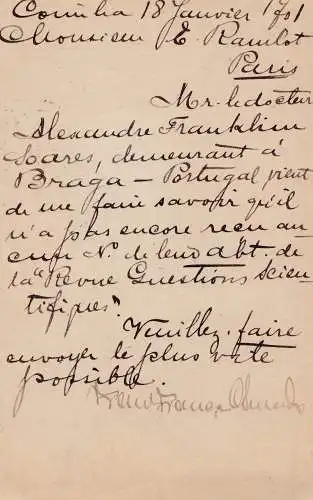 Coimbra 18 Janvier 1901
Monsieur E. Ramlot
Paris
Mr. le docteur
Alexandre Franklim
Soares, demeurant à
Braga — Portugal, vient
de me faire savoir qu'il
n'a pas encore reçu au
cun No. de leur abt. de
la "Revue Questions Scien-
tifiques".
Veuillez faire
envoyer le plus vite
possible.
França